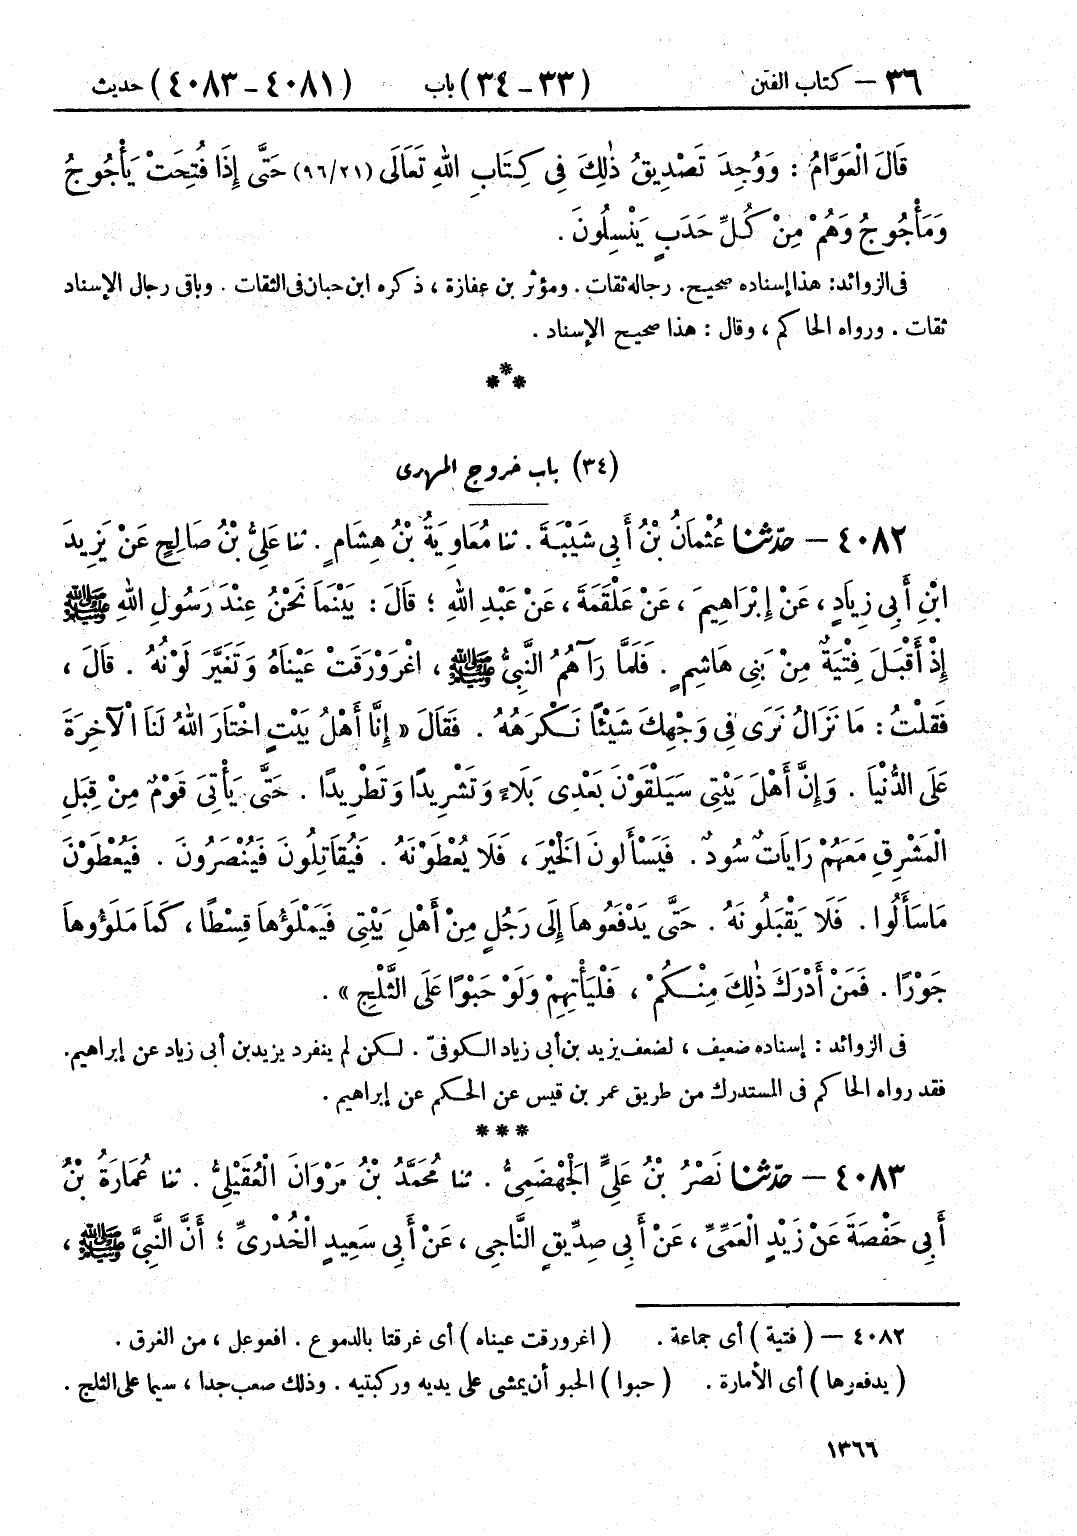 ٣٦ – كتاب الفتن (٣٣ – ٣٤) باب (٤٠٨١ – ٤٠٨٣) حديث
قَالَ الْعَوَّامُ : وَوُجِدَ تَصْدِيقُ ذٰلِكَ فِي كِتَابِ اللهِ تَعَالَى (٩٦/٢١) حَتَّى إِذَا فُتِحَتْ يَأْجُوجُ
وَمَأْجُوجُ وَهُمْ مِنْ كُلِّ حَدَبٍ يَنْسِلُونَ .
فى الزوائد: هذا إسناده صحيح. رجاله ثقات . ومؤثر بن عفازة ، ذكره ابن حبان فى الثقات . وباقى رجال الإسناد
ثقات . ورواه الحاكم ، وقال : هذا صحيح الإسناد .
***
(٣٤) باب خروج المهدى
٤٠٨٢ – حدّثنا عُثْمَانُ بْنُ أَبِي شَيْبَةَ . ثنا مُعَاوِيَةُ بْنُ هِشَامٍ . ثنا عَلِيُّ بْنُ صَالِحٍ عَنْ يَزِيدَ
ابْنِ أَبِي زِيَادٍ ، عَنْ إِبْرَاهِيمَ ، عَنْ عَلْقَمَةَ ، عَنْ عَبْدِ اللهِ ؛ قَالَ : بَيْنَمَا نَحْنُ عِنْدَ رَسُولِ اللهِ ﷺ
إِذْ أَقْبَلَ فِتْيَةٌ مِنْ بَنِي هَاشِمٍ . فَلَمَّا رَآهُمُ النَّبِيُّ ﷺ ، اغْرَوْرَقَتْ عَيْنَاهُ وَتَغَيَّرَ لَوْنُهُ . قَالَ ،
فَقُلْتُ : مَا نَزَالُ نَرَى فِي وَجْهِكَ شَيْئًا نَكْرَهُهُ . فَقَالَ « إِنَّا أَهْلُ بَيْتٍ اخْتَارَ اللهُ لَنَا الْآخِرَةَ
عَلَى الدُّنْيَا . وَإِنَّ أَهْلَ بَيْتِي سَيَلْقَوْنَ بَعْدِي بَلَاءً وَتَشْرِيدًا وَتَطْرِيدًا . حَتَّى يَأْتِيَ قَوْمٌ مِنْ قِبَلِ
الْمَشْرِقِ مَعَهُمْ رَايَاتٌ سُودٌ . فَيَسْأَلُونَ الْخَيْرَ ، فَلَا يُعْطَوْنَهُ . فَيُقَاتِلُونَ فَيُنْصَرُونَ . فَيُعْطَوْنَ
مَا سَأَلُوا . فَلَا يَقْبَلُونَهُ . حَتَّى يَدْفَعُوهَا إِلَى رَجُلٍ مِنْ أَهْلِ بَيْتِي فَيَمْلَؤُهَا قِسْطًا ، كَمَا مَلَؤُوهَا
جَوْرًا . فَمَنْ أَدْرَكَ ذٰلِكَ مِنْكُمْ ، فَلْيَأْتِهِمْ وَلَوْ حَبْوًا عَلَى الثَّلْجِ » .
فى الزوائد : إسناده ضعيف ، لضعف يزيد بن أبى زياد الكوفىّ . لكن لم ينفرد يزيد بن أبى زياد عن إبراهيم.
فقد رواه الحاكم فى المستدرك من طريق عمر بن قيس عن الحكم عن إبراهيم .
***
٤٠٨٣ – حدّثنا نَصْرُ بْنُ عَلِيٍّ الْجَهْضَمِيُّ . ثنا مُحَمَّدُ بْنُ مَرْوَانَ الْعُقَيْلِيُّ . ثنا عُمَارَةُ بْنُ
أَبِي حَفْصَةَ عَنْ زَيْدٍ الْعَمِّيِّ ، عَنْ أَبِي صِدِّيقٍ النَّاجِي ، عَنْ أَبِي سَعِيدٍ الْخُدْرِيِّ ؛ أَنَّ النَّبِيَّ ﷺ ،
٤٠٨٢ – ( فتية ) أى جماعة . ( اغرورقت عيناه ) أى غرقتا بالدموع . افعوعل ، من الغرق .
( يدفعوها ) أى الأمارة . ( حبوا ) الحبو أن يمشى على يديه وركبتيه . وذلك صعب جدا ، سيما على الثلج .
١٣٦٦